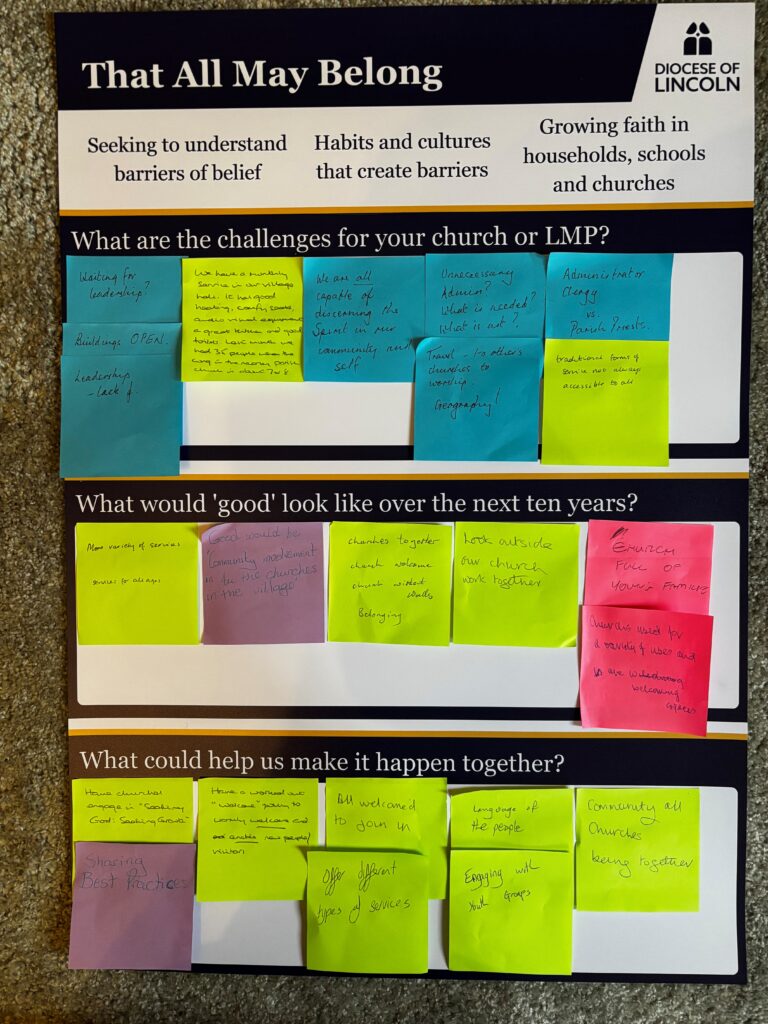 That All May Belong
DIOCESE OF
LINCOLN
Seeking to understand
barriers of belief
Habits and cultures
that create barriers
Growing faith in
households, schools
and churches
What are the challenges for your church or LMP?
Waiting for
leadership?
Buildings OPEN.
Leadership
- lack of.
We have a monthly
service in our village
hall. It has good
heating, comfy seats,
audio visual equipment
a great kitchen and good
toilets. Last month we
had 35 people when the
cong in the nearby parish
church is about 7 or 8
We are all
capable of
discerning the
Spirit in our
community and
self
Unnecessary
Admin?
What is needed?
What is not?
Travel - to others
churches to
worship.
Geography!
Administrator
Clergy
vs.
Parish Priests.
traditional forms of
service not always
accessible to all
What would 'good' look like over the next ten years?
More variety of services
services for all ages
Good would be
'Community involvement
in the churches
in the village'
Churches together
church welcome
church without
walls
Belonging
Look outside
our church
work together
CHURCH
FULL OF
YOUNG FAMILIES
Churches used for
a variety of uses and
are
welcoming
spaces
What could help us make it happen together?
Have churches
engage in "Seeking
God: Seeking Growth"
Sharing
Best Practices
Have a worked out
"Welcome" policy to
warmly welcome and
new people/
visitors
All welcomed
to join in
Offer different
types of services
Language of
the people
Engaging with
Youth Groups
Community all
Churches
being together